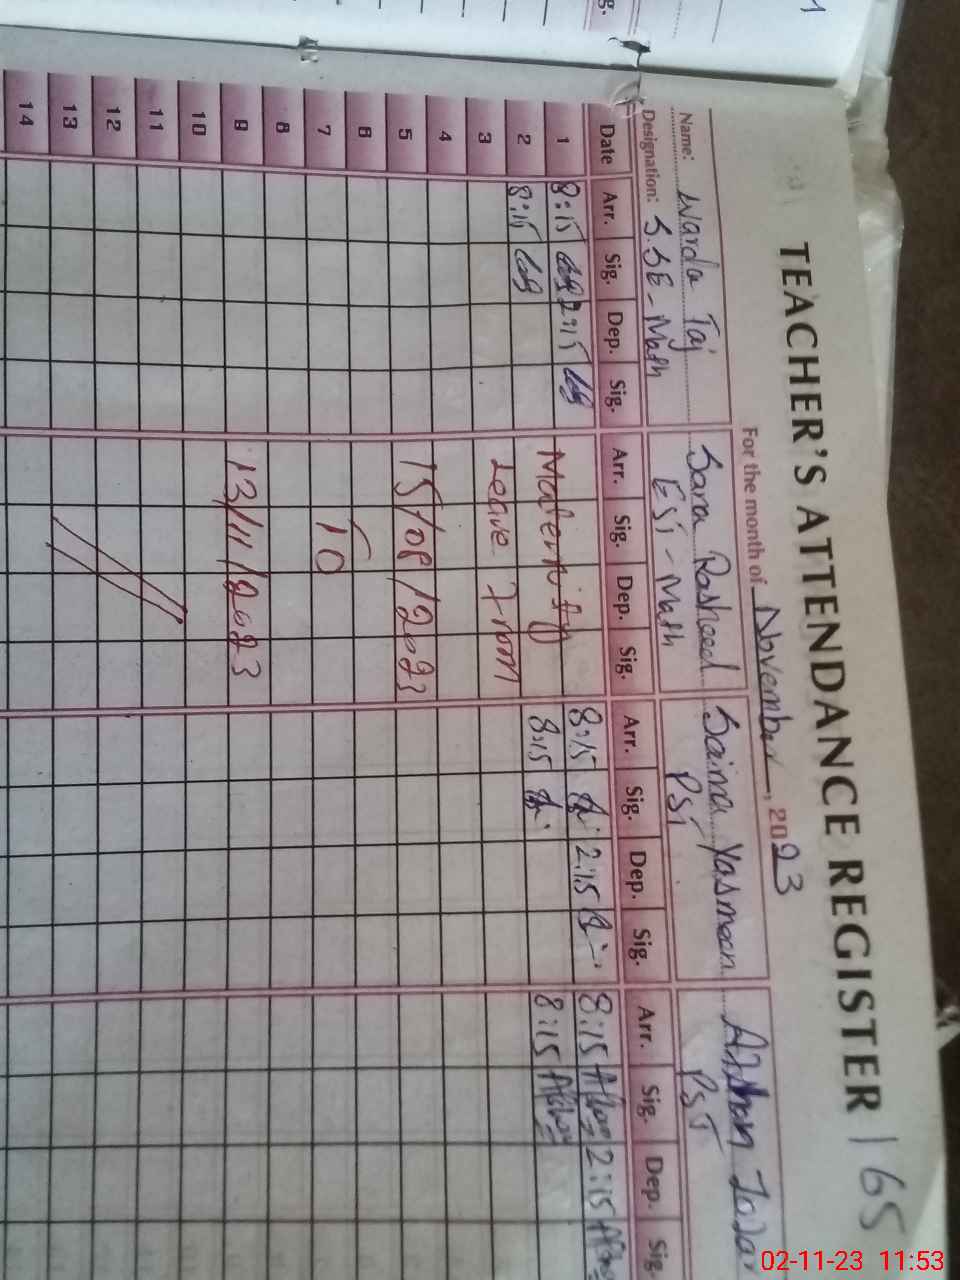 TEACHER'S ATTENDANCE REGISTER 165
For the month of November, 2023
Name: Warda Taj Sara Rasheed Saima Yasmeen
Designation: S.SE-Math ESI-Math PST PST
Date Arr. Sig. Dep. Sig. Arr. Sig. Dep. Sig. Arr. Sig. Dep. Sig. Arr. Sig. Dep. Sig.
1 8:15 2:15 Maternity 8:15 2:15 8:15 2:15
2 8:15 Leave From 8:15 8:15
3
4
5 15/08/2023
6
7 TO
8
9 13/11/2023
10
11
12
13
14
02-11-23 11:53